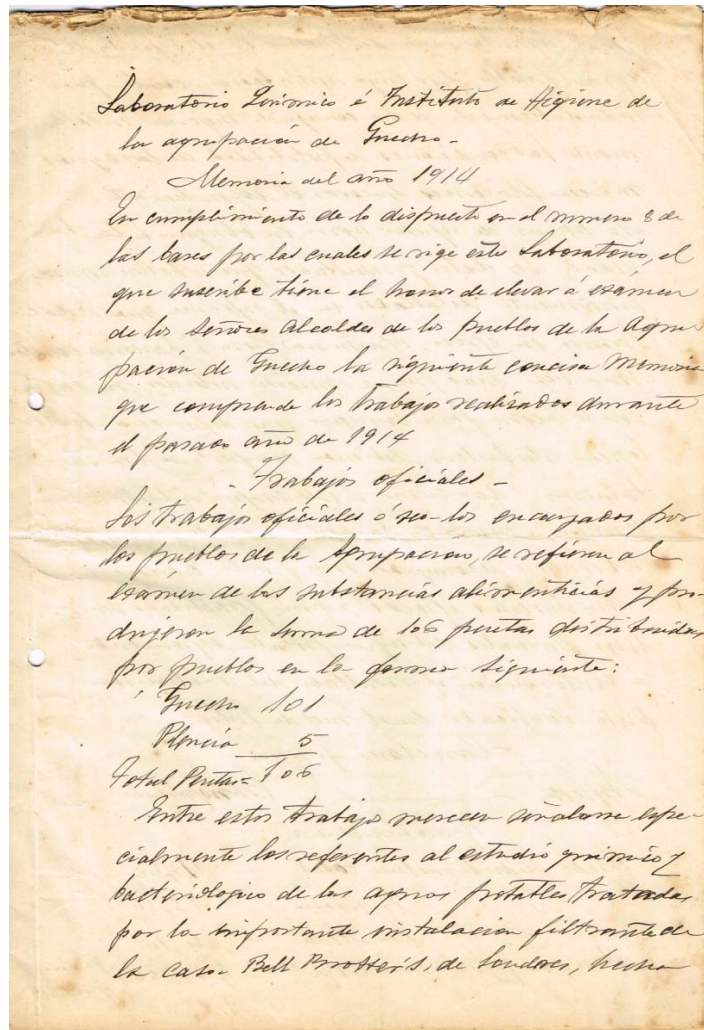 Laboratorio Químico é Instituto de Higiene de
la agrupación de Guecho -
Memoria del año 1914
En cumplimiento de lo dispuesto en el número 8 de
las bases por las cuales se rige este Laboratorio, el
que suscribe tiene el honor de elevar á exámen
de los Señores Alcaldes de los pueblos de la Agru-
pación de Guecho la siguiente concisa Memoria
que comprende los trabajos realizados durante
el pasado año de 1914
- Trabajos oficiales -
Los trabajos oficiales ó sea los encargados por
los pueblos de la Agrupación, se refieren al
exámen de las substancias alimenticias y pro-
dujeron la suma de 106 pesetas distribuidas
por pueblos en la forma siguiente:
Guecho 101
Plencia 5
Total Pesetas = 106
Entre estos trabajos merecen señalarse espe-
cialmente los referentes al estudio químico y
bacteriológico de las aguas potables tratadas
por la importante instalacion filtrante de
la casa Bell Brother's, de Londres, hecha